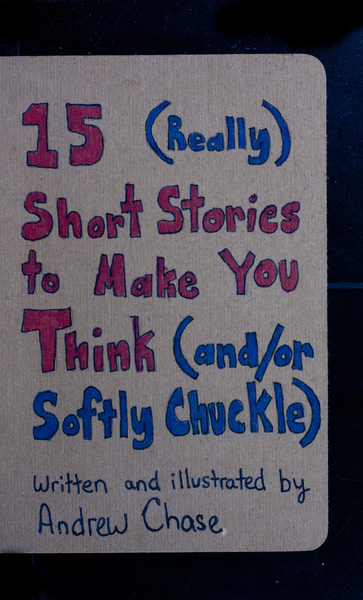 15 (Really)
Short Stories
to Make You
Think (and/or
Softly Chuckle)
Written and illustrated by
Andrew Chase